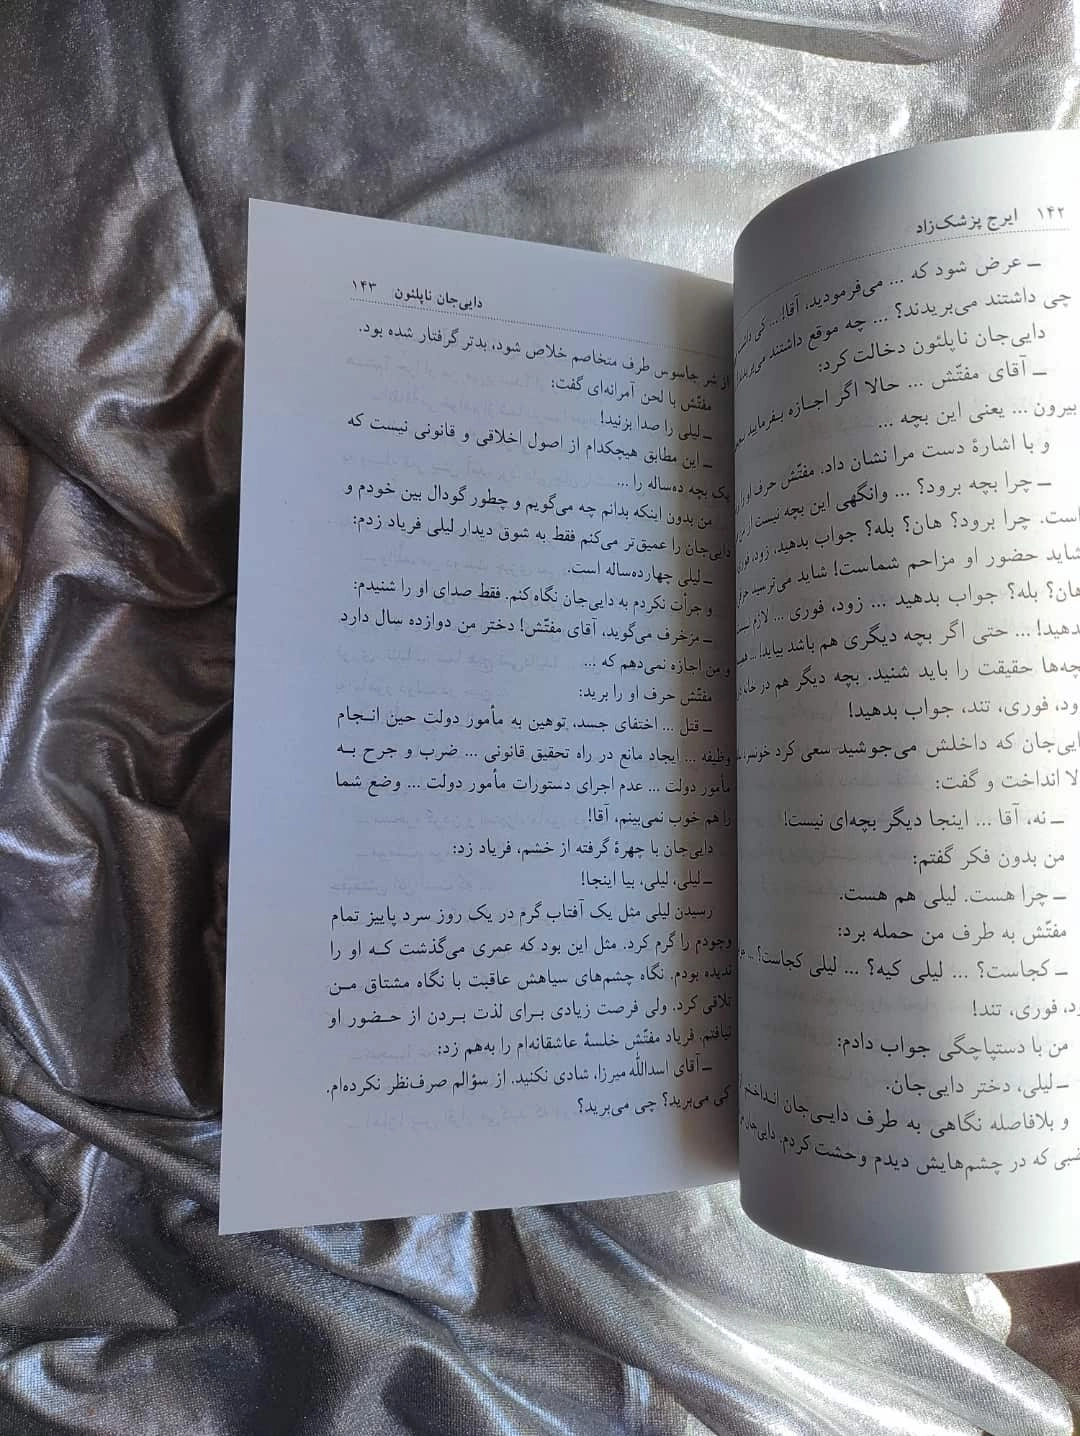 ۱۴۲ ایرج پزشک‌زاد
ــ عرض شود که ... می‌فرمودید، آقا! ... کی
چی داشتند می‌بریدند؟ ... چه موقع داشتند
دایی‌جان ناپلئون دخالت کرد:
ــ آقای مفتّش ... حالا اگر اجـازه بـفرمایید
بیرون ... یعنی این بچه ...
و با اشارهٔ دست مرا نشان داد. مفتّش حرف او را
ــ چرا بچه برود؟ ... وانگهی این بچه نیست از
است. چرا برود؟ هان؟ بله؟ جواب بدهید، زود، فوری
شاید حضور او مزاحم شماست! شاید می‌ترسید
هان؟ بله؟ جواب بدهید ... زود، فوری ... لازم
بدهید! ... حتی اگر بچه دیگری هم باشد بیاید! ...
چه‌ها حقیقت را باید شنید. بچه دیگر هم در
ود، فوری، تند، جواب بدهید!
ایی‌جان که داخلش می‌جوشید سعی کرد
لا انداخت و گفت:
ــ نه، آقا ... اینجا دیگر بچه‌ای نیست!
من بدون فکر گفتم:
ــ چرا هست. لیلی هم هست.
مفتّش به طرف من حمله برد:
ــ کجاست؟ ... لیلی کیه؟ ... لیلی کجاست؟ ...
ود، فوری، تند!
من با دستپاچگی جواب دادم:
ــ لیلی، دختر دایی‌جان.
و بلافاصله نگاهی به طرف دایـی‌جان انداختم
ضبی که در چشم‌هایش دیدم وحشت کردم. دایی‌جان
دایی‌جان ناپلئون ۱۴۳
از شر جاسوس طرف متخاصم خلاص شود، بدتر گرفتار شده بود.
مفتّش با لحن آمرانه‌ای گفت:
ــ لیلی را صدا بزنید!
ــ این مطابق هیچکدام از اصول اخلاقی و قانونی نیست که
یک بچه ده‌ساله را ...
من بدون اینکه بدانم چه می‌گویم و چطور گودال بین خودم و
دایی‌جان را عمیق‌تر می‌کنم فقط به شوق دیدار لیلی فریاد زدم:
ــ لیلی چهارده‌ساله است.
و جرأت نکردم به دایی‌جان نگاه کنم. فقط صدای او را شنیدم:
ــ مزخرف می‌گوید، آقای مفتّش! دختر من دوازده سال دارد
و من اجازه نمی‌دهم که ...
مفتّش حرف او را برید:
ــ قتل ... اختفای جسد، توهین به مأمور دولت حین انـجام
وظیفه ... ایجاد مانع در راه تحقیق قانونی ... ضرب و جرح بـه
مأمور دولت ... عدم اجرای دستورات مأمور دولت ... وضع شما
را هم خوب نمی‌بینم، آقا!
دایی‌جان با چهرهٔ گرفته از خشم، فریاد زد:
ــ لیلی، لیلی، بیا اینجا!
رسیدن لیلی مثل یک آفتاب گرم در یک روز سرد پاییز تمام
وجودم را گرم کرد. مثل این بود که عمری می‌گذشت کـه او را
ندیده بودم. نگاه چشم‌های سیاهش عاقبت با نگاه مشتاق مـن
تلاقی کرد. ولی فرصت زیادی بـرای لذت بـردن از حـضور او
نیافتم. فریاد مفتّش خلسهٔ عاشقانه‌ام را به‌هم زد:
ــ آقای اسدالله میرزا، شادی نکنید. از سؤالم صرف‌نظر نکرده‌ام.
کی می‌برید؟ چی می‌برید؟